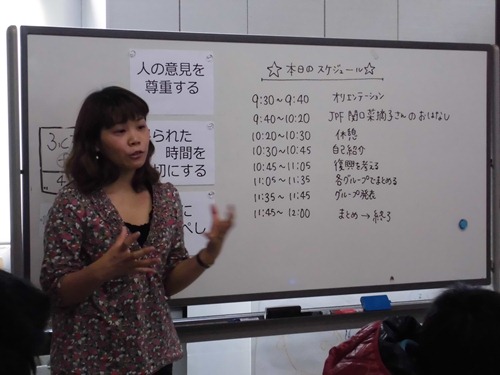 人の意見を
尊重する
られた
時間を
切にする
に
べし
☆本日のスケジュール☆
9:30～9:40 オリエンテーション
9:40～10:20 JPF 関口菜摘子さんのおはなし
10:20～10:30 休憩
10:30～10:45 自己紹介
10:45～11:05 復興を考える
11:05～11:35 各グループでまとめる
11:35～11:45 グループ発表
11:45～12:00 まとめ→終了